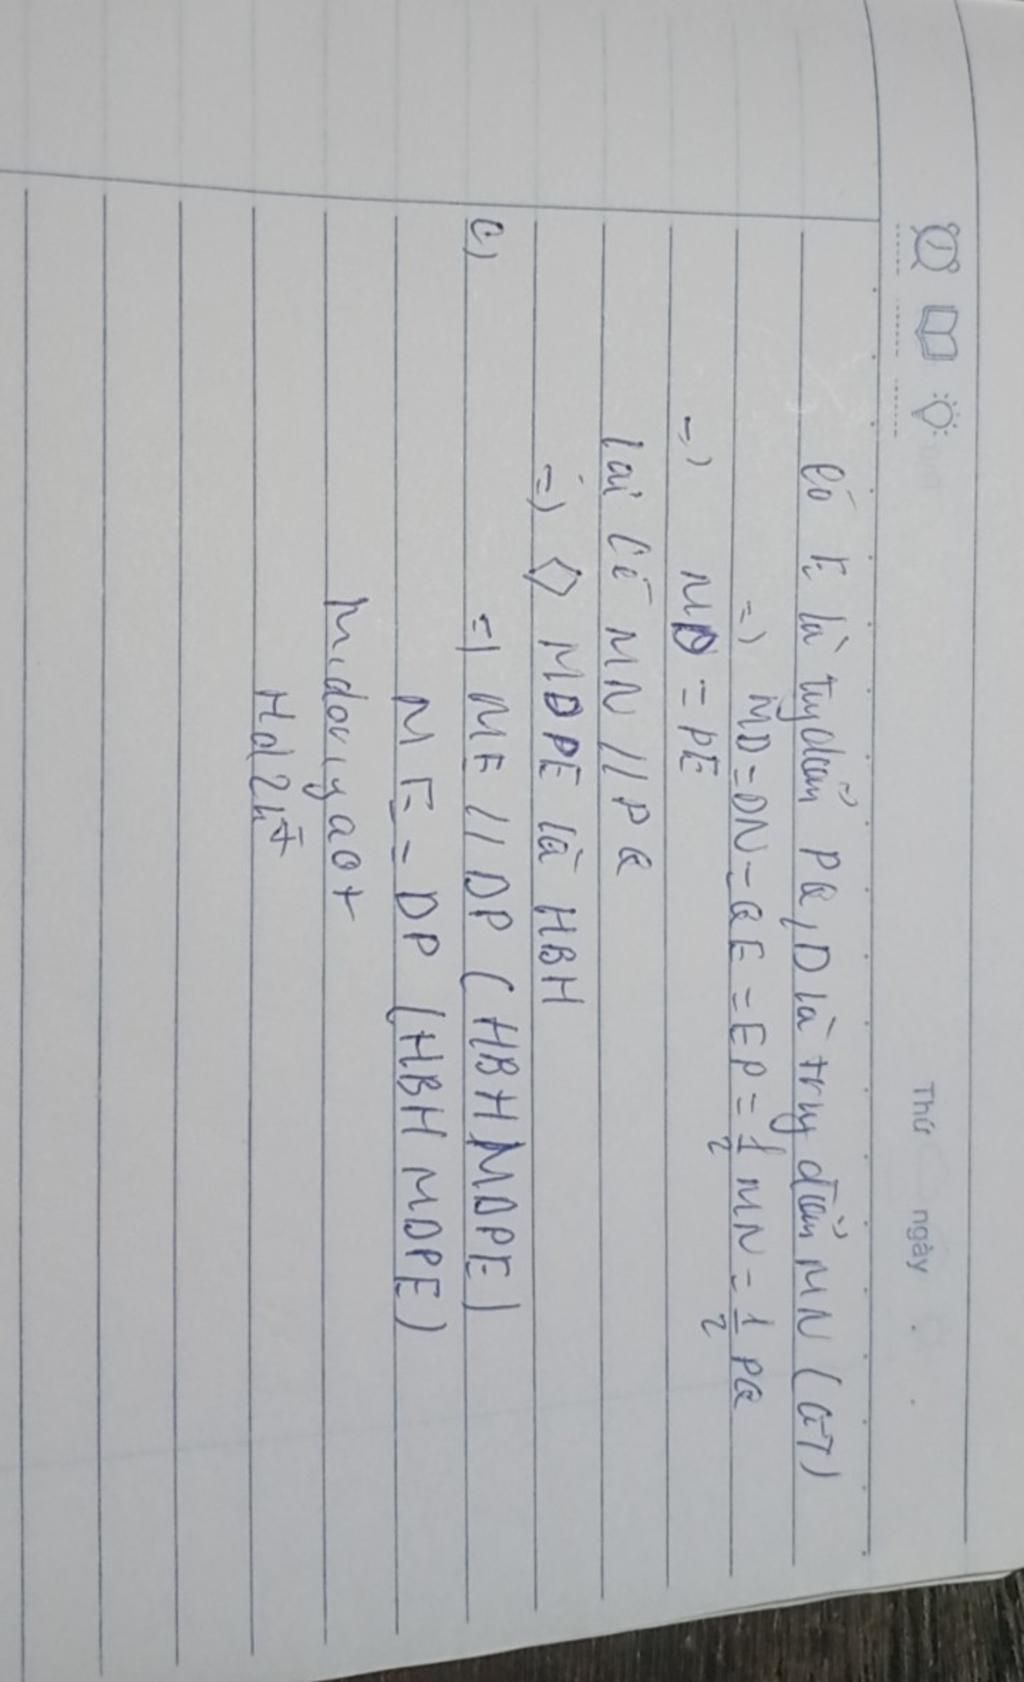 Thứ ngày
Có E là trug điểm PQ, D là trug điểm MN (GT)
=) MD = DN = QE = EP = 1/2 MN = 1/2 PQ
=) MD = PE
lại Có MN // PQ
=) ◇ MDPE là HBH
c) =) ME // DP (HBH MDPE)
ME = DP (HBH MDPE)
Midoriya07
Hd2k7